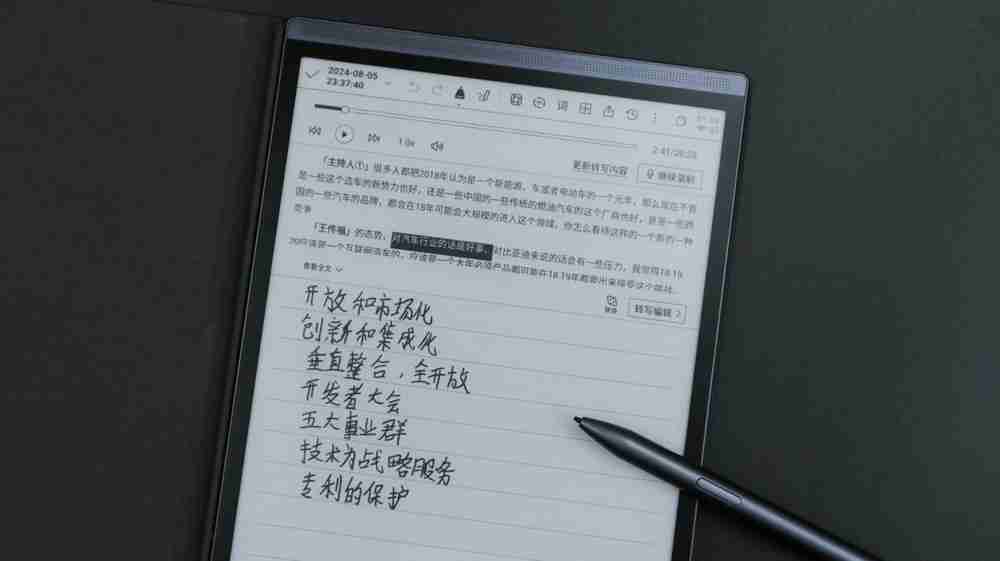 2024-08-05
23:37:40
词
2:41/26:23
1.0x
更新转写内容
继续录制
「主持人①」很多人都把2018年认为是一个新能源、车或者电动车的一个元年，那么现在不管
是一些这个造车的新势力也好，还是一些中国的一些传统的燃油汽车的这个厂商也好，甚至一些外
国的一些汽车的品牌，都会在18年可能会大规模的进入这个领域，你怎么看待这样的一个新的一种
竞争
「王传福」的态势，对汽车行业的话是好事，对比亚迪来说的话会有一些压力，我觉得18.19
查看全文
转写编辑
开放和市场化
创新和集成化
垂直整合，全开放
开发者大会
五大事业群
技术为战略服务
专利的保护